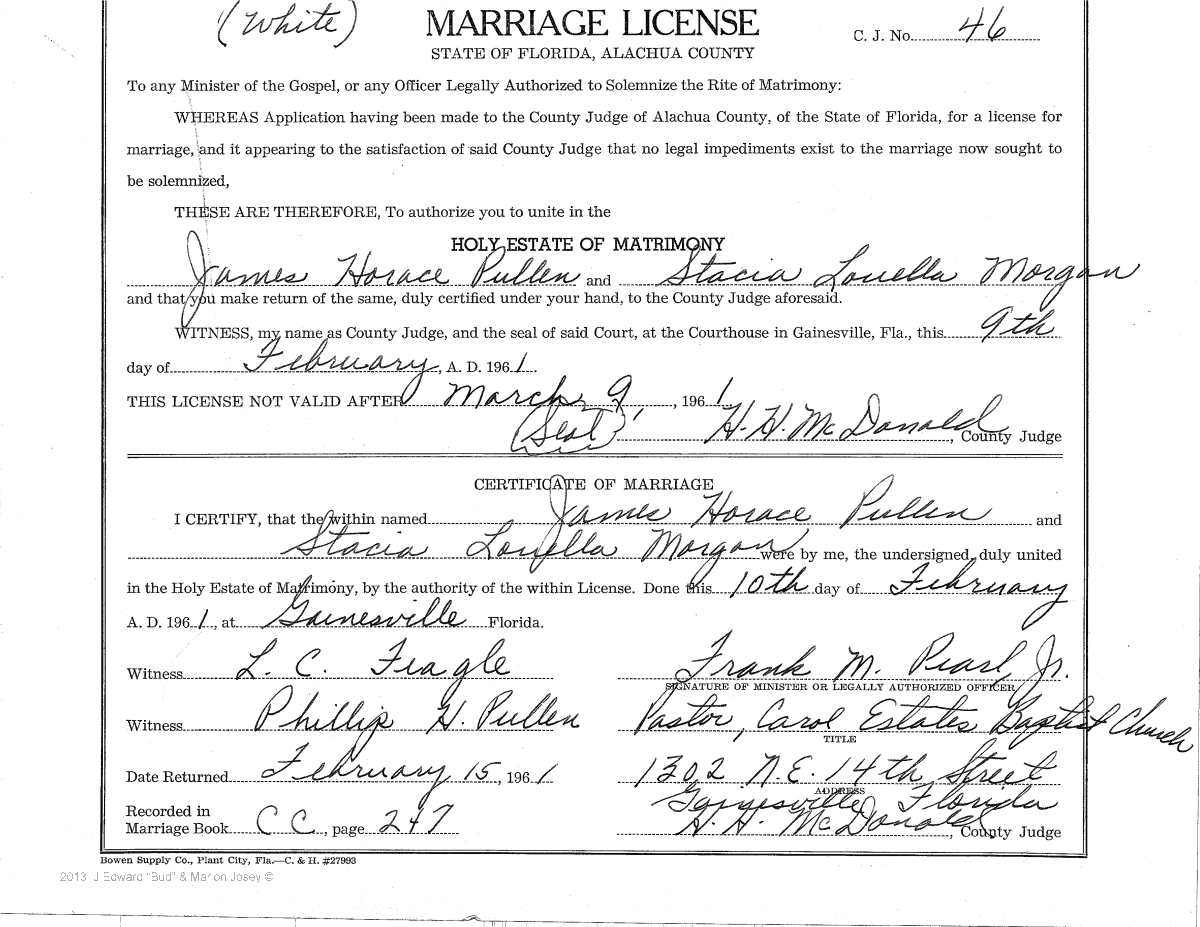 (White)
MARRIAGE LICENSE
C. J. No. 46
STATE OF FLORIDA, ALACHUA COUNTY
To any Minister of the Gospel, or any Officer Legally Authorized to Solemnize the Rite of Matrimony:
WHEREAS Application having been made to the County Judge of Alachua County, of the State of Florida, for a license for
marriage, and it appearing to the satisfaction of said County Judge that no legal impediments exist to the marriage now sought to
be solemnized,
THESE ARE THEREFORE, To authorize you to unite in the
HOLY ESTATE OF MATRIMONY
James Horace Pullen and Stacia Louella Morgan
and that you make return of the same, duly certified under your hand, to the County Judge aforesaid.
WITNESS, my name as County Judge, and the seal of said Court, at the Courthouse in Gainesville, Fla., this 9th
day of February, A. D. 1961.
THIS LICENSE NOT VALID AFTER March 9, , 1961
(Seal) H. H. McDonald, County Judge
CERTIFICATE OF MARRIAGE
I CERTIFY, that the within named James Horace Pullen and
Stacia Louella Morgan were by me, the undersigned, duly united
in the Holy Estate of Matrimony, by the authority of the within License. Done this 10th day of February
A. D. 1961, at Gainesville Florida.
Witness L. C. Feagle
Frank M. Pearl, Jr.
SIGNATURE OF MINISTER OR LEGALLY AUTHORIZED OFFICER
Witness Phillip H. Pullen
Pastor, Carol Estates Baptist Church
TITLE
Date Returned February 15, 1961
1302 N.E. 14th Street
ADDRESS
Gainesville, Florida
Recorded in
Marriage Book CC, page 247
H. H. McDonald, County Judge
Bowen Supply Co., Plant City, Fla.—C. & H. #27993
2013 J Edward "Bud" & Marion Josey ©